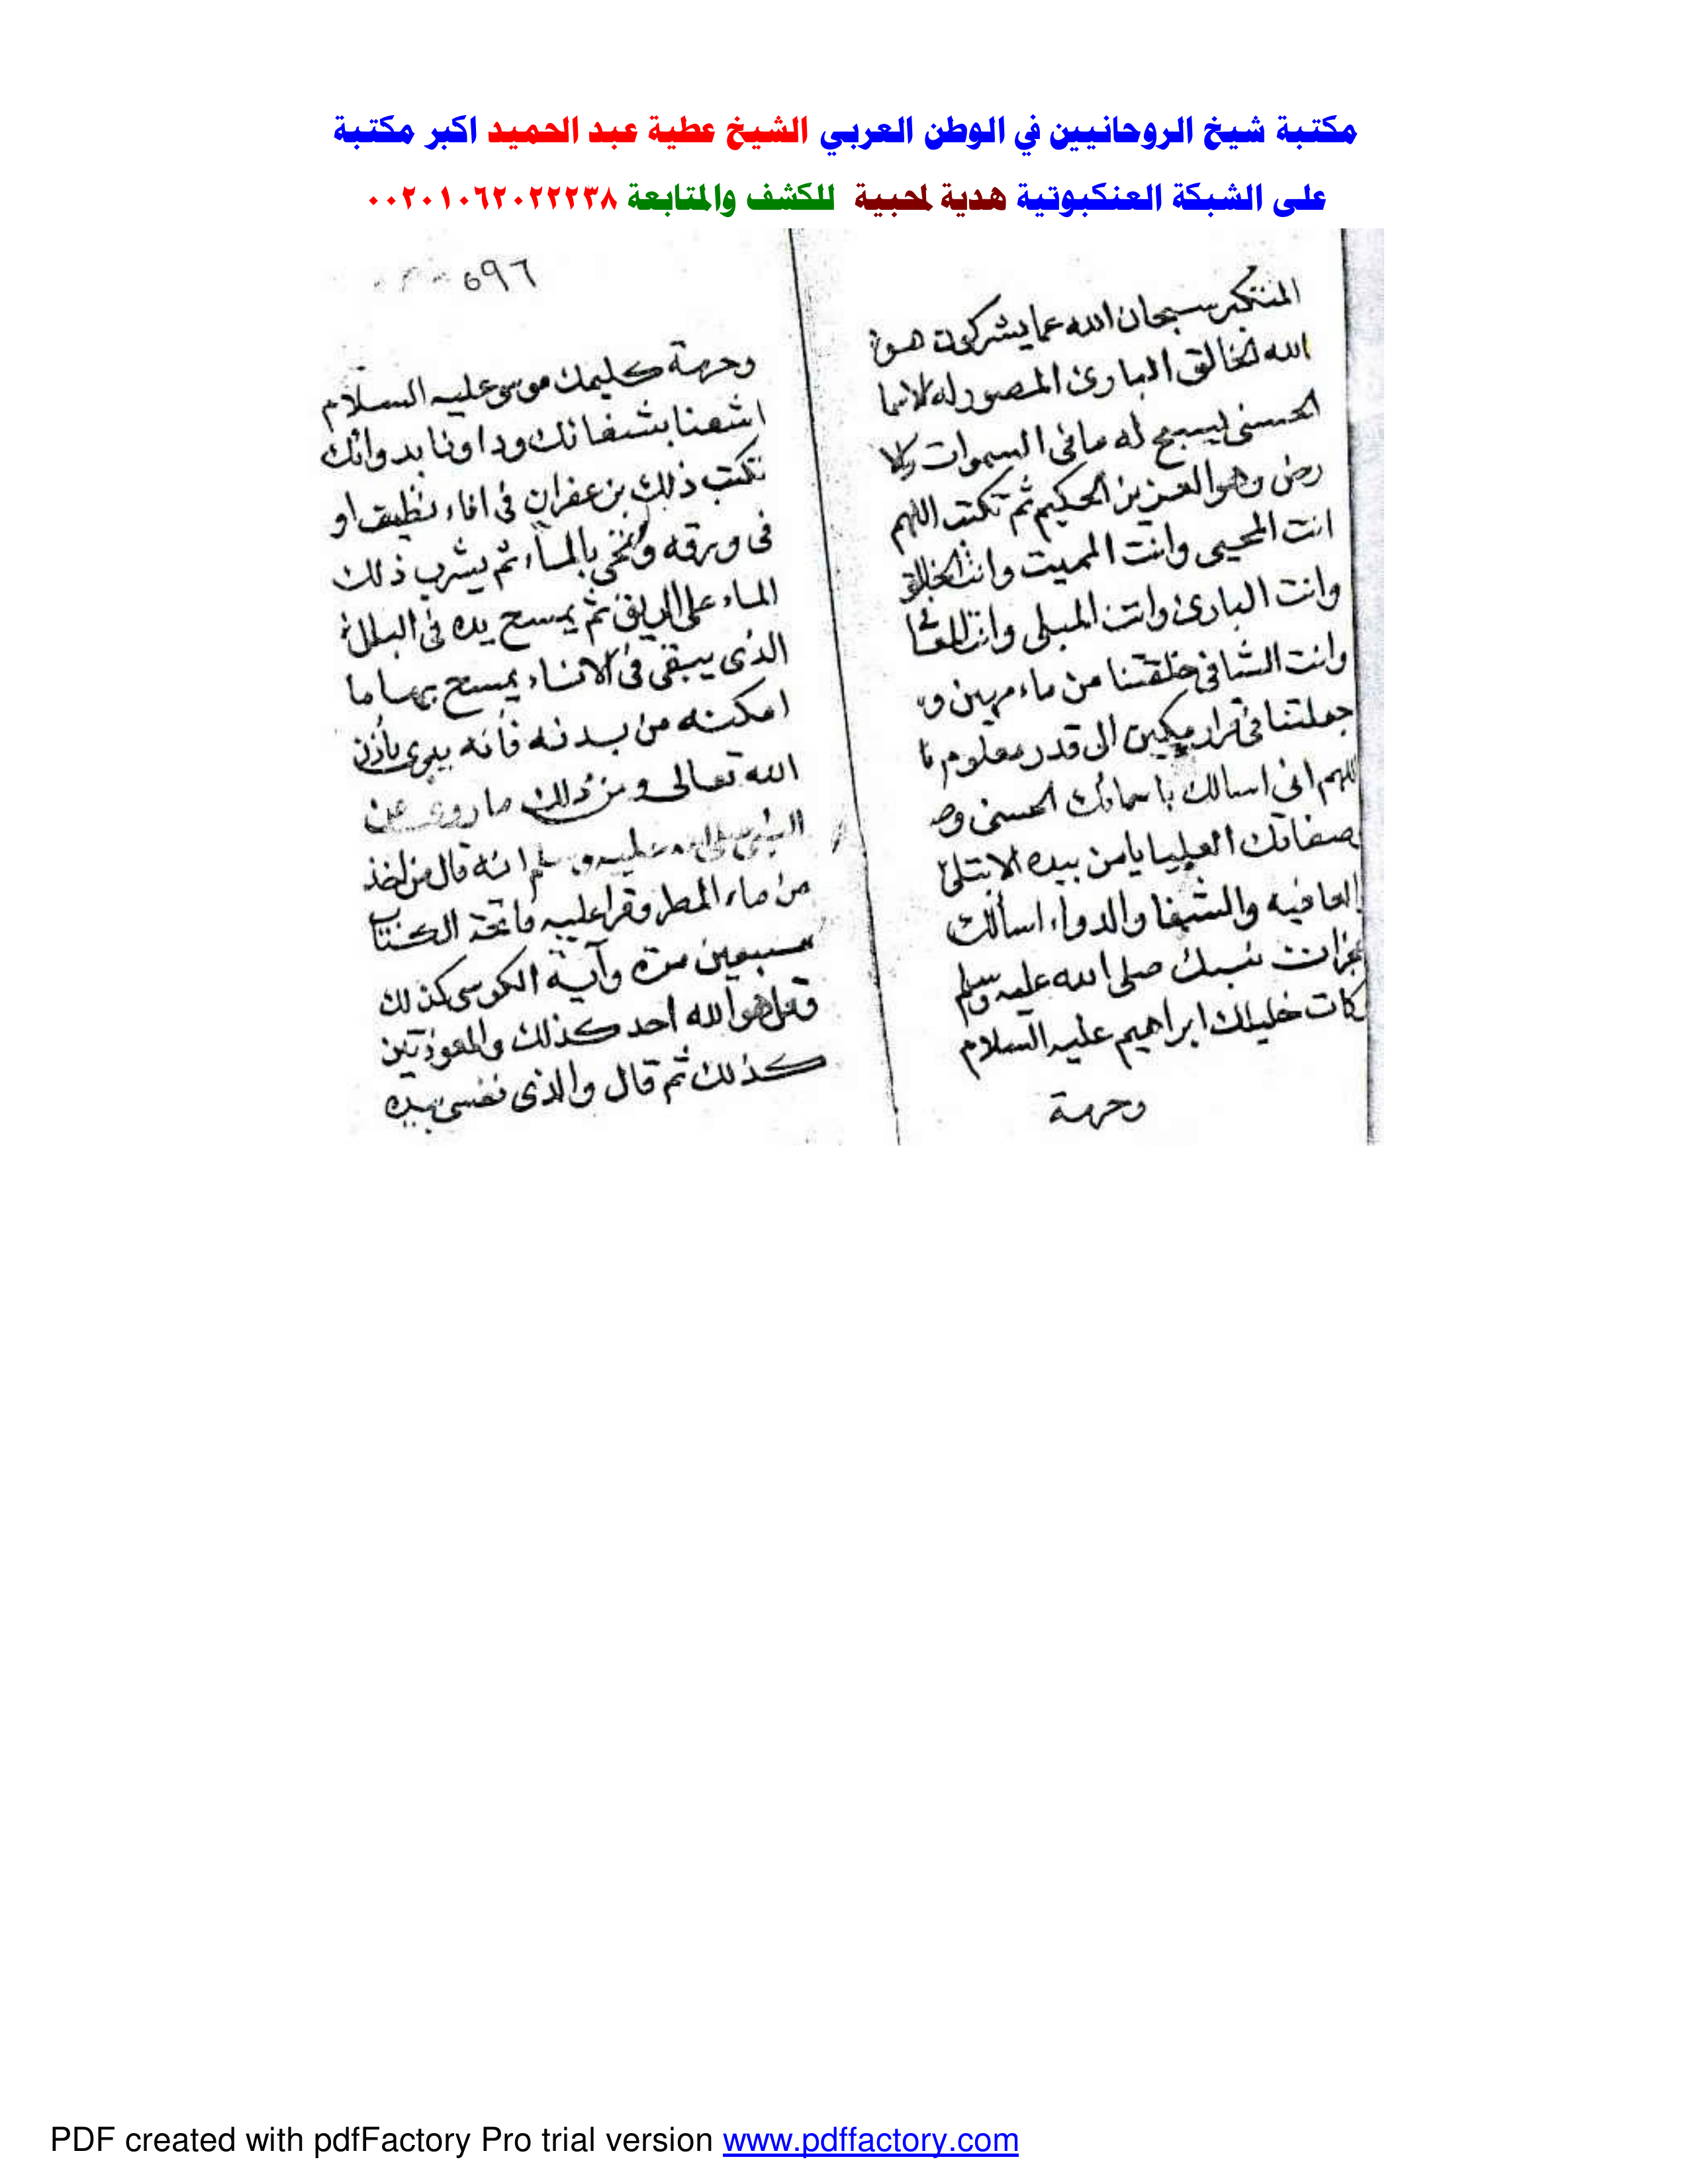 مكتبة شيخ الروحانيين في الوطن العربي الشيخ عطية عبد الحميد اكبر مكتبة
على الشبكة العنكبوتية هدية لمحبية للكشف والمتابعة ٠٠٢٠١٠٦٢٠٢٢٢٣٨
المتكبر سبحان الله عما يشركون هو
الله الخالق البارئ المصور له الاسما
الحسنى يسبح له ما فى السموات والا
رض وهو العزيز الحكيم ثم تكتب اللهم
انت المحيى وانت المميت وانت الخالق
وانت البارئ وانت المبلى وانت
وانت الشافى خلقتنا من ماء مهين و
جعلتنا فى قرار مكين الى قدر معلوم
اللهم انى اسالك باسمائك الحسنى و
بصفاتك العليا يا من بيده الابتلى
العافيه والشفا والدواء اسألك
نبيك صلى الله عليه وسلم
خليلك ابراهيم عليه السلام
وحرمة
٥٩٦
وحرمة كليمك موسى عليه السلام
اشفنا بشفائك وداونا بدوائك
تكتب ذلك بزعفران فى اناء نظيف او
فى ورقه وتمحى بالماء ثم يشرب ذلك
الماء على الريق ثم يمسح يده فى البلل
الذى يبقى فى الاناء يمسح بها ما
امكنه من بدنه فأنه يبرى بأذن
الله تعالى ومن ذلك ما روى عن
النبى صلى الله عليه وسلم انه قال من اخذ
من ماء المطر وقرا عليه فاتحة الكتاب
سبعين مرة وآية الكرسى كذلك
وقل هو الله احد كذلك والمعوذتين
كذلك ثم قال والذى نفسى بيده
PDF created with pdfFactory Pro trial version www.pdffactory.com